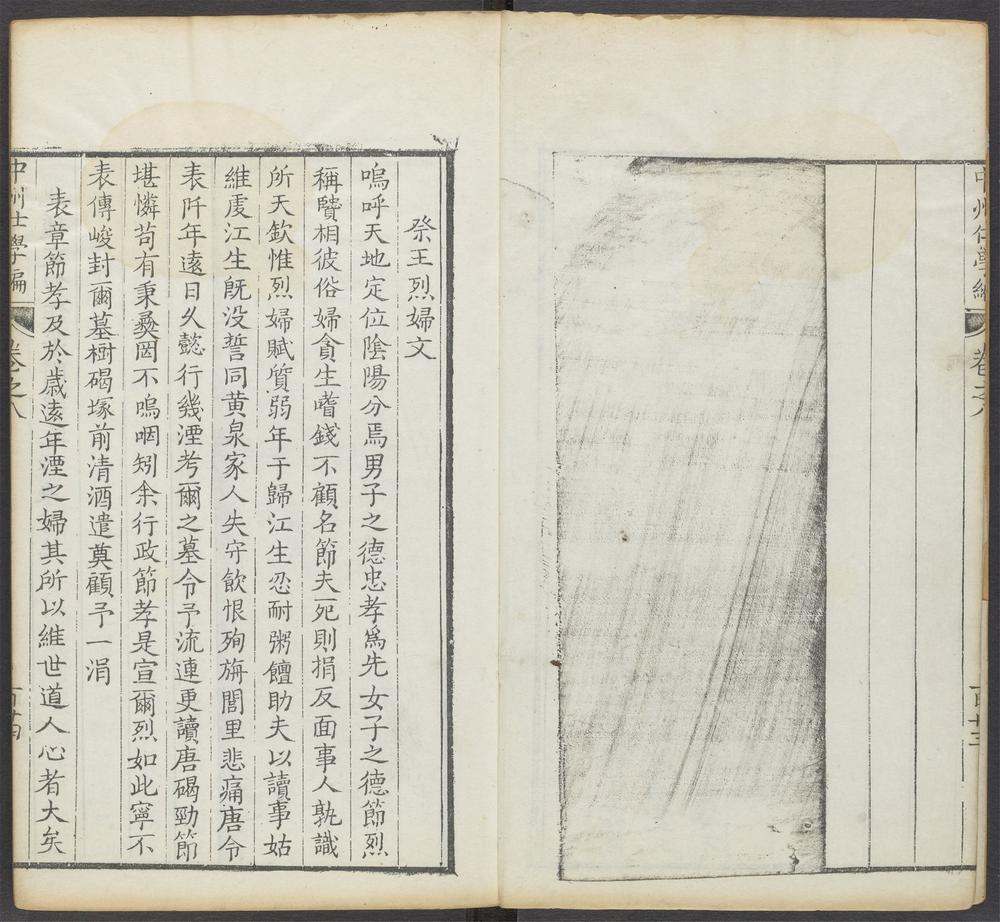 中州仕學編
卷之八
百十三
祭王烈婦文
嗚呼天地定位隂陽分焉男子之德忠孝爲先女子之德節烈
稱賢相彼俗婦貪生嗜錢不顧名節夫死則捐反面事人孰識
所天欽惟烈婦賦質弱年于歸江生忍耐粥饘助夫以讀事姑
維虔江生旣没誓同黄泉家人失守飲恨殉旃閭里悲痛唐令
表阡年遠日乆懿行幾湮考爾之墓令予流連更讀唐碣勁節
堪憐苟有秉彜罔不嗚咽矧余行政節孝是宣爾烈如此寧不
表傳峻封爾墓樹碣塚前清酒遣奠顧予一涓
表章節孝及於歲遠年湮之婦其所以維世道人心者大矣
中州仕學編
卷之八